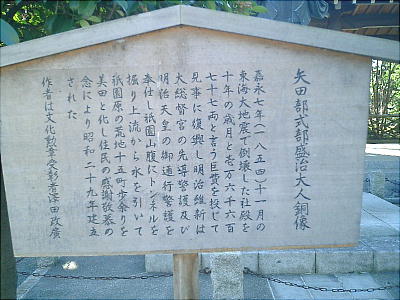 矢田部式部盛治大人銅像
嘉永七年(一八五四)十一月の
東海大地震で倒壊した社殿を
十年の歳月と壱万六千六百
七十七両と言う巨費を投じて
見事に復興し明治維新は
大総督宮の先導警護及び
明治天皇の御通行警護を
奉仕し祇園山腹にトンネルを
掘り上流から水を引いて
祇園原の荒地十五町歩余りを
美田と化し住民の感謝敬慕の
念により昭和二十九年建立
された
作者は文化勲章受彰者澤田政廣